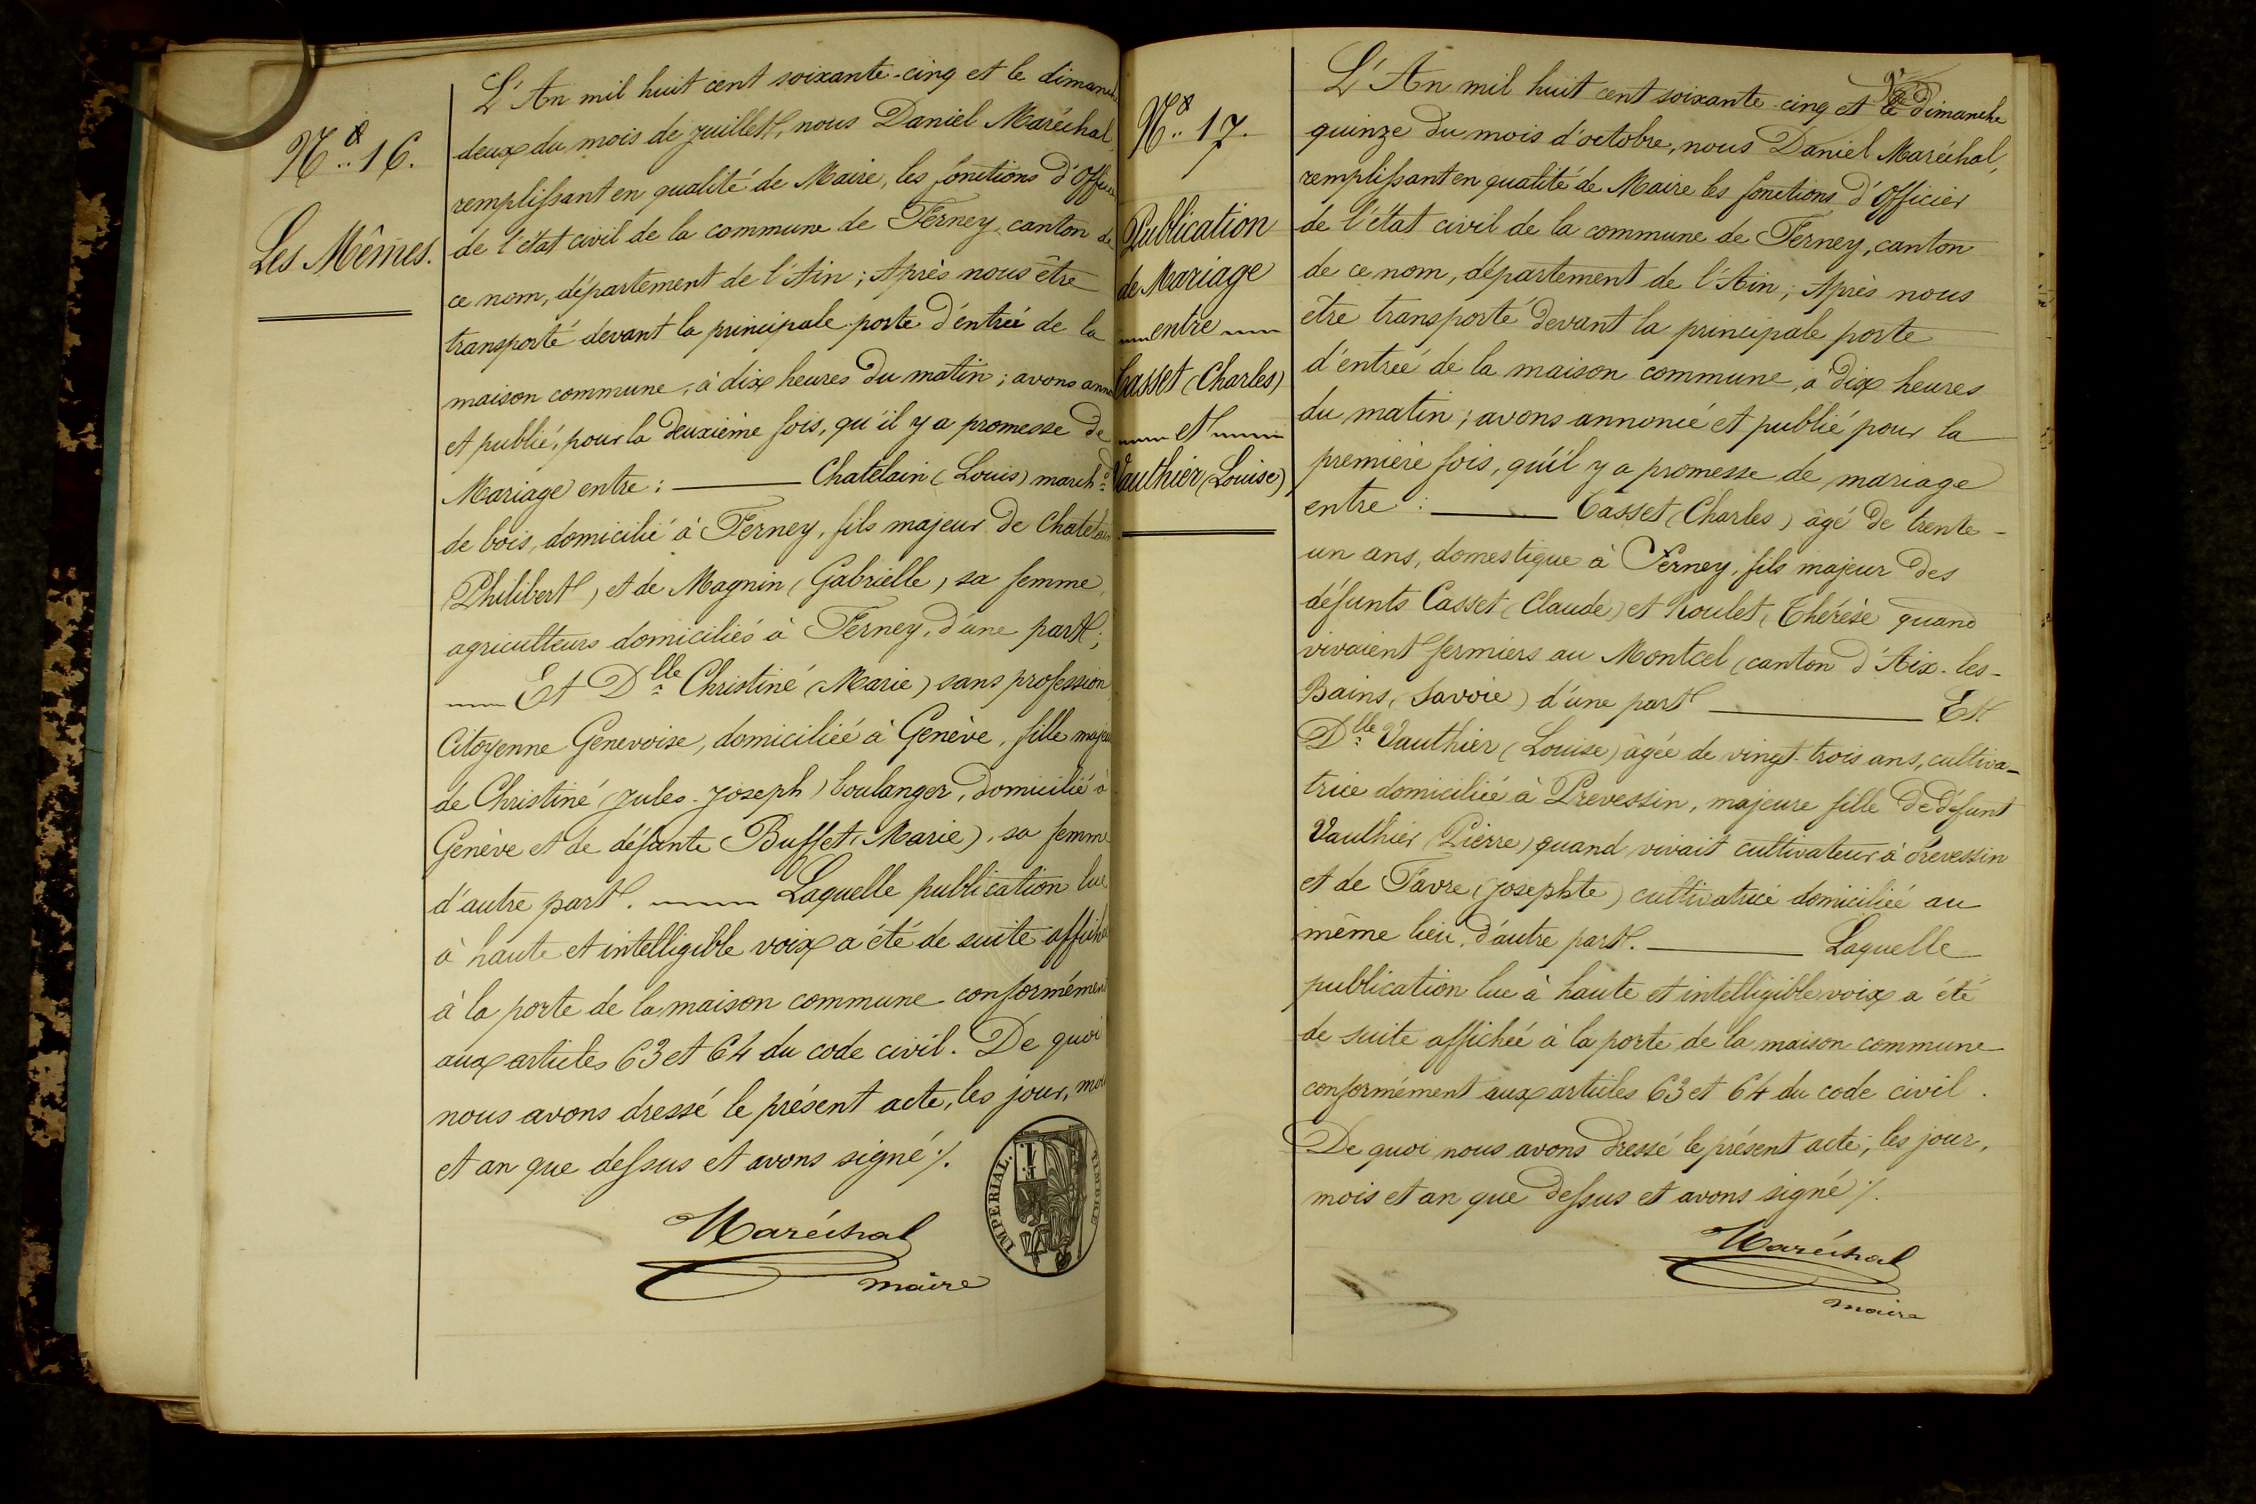 N.o 16.
Les Mêmes.
L'An mil huit cent soixante-cinq et le dimanche
deux du mois de juillet, nous Daniel Maréchal,
remplissant en qualité de Maire, les fonctions d'Officier
de l'état civil de la commune de Ferney, canton de
ce nom, département de l'Ain ; Après nous être
transporté devant la principale porte d'entrée de la
maison commune, à dix heures du matin ; avons anno
et publié, pour la deuxième fois, qu'il y a promesse de
Mariage entre : ——— Chatelain (Louis) march.d
de bois, domicilié à Ferney, fils majeur de Chatelain
(Philibert) et de Magnin (Gabrielle) sa femme,
agriculteurs domiciliés à Ferney, d'une part ;
Et D.lle Christiné (Marie) sans profession
Citoyenne Genevoise, domiciliée à Genève, fille majeu
de Christiné (Jules-Joseph) boulanger, domicilié à
Genève et de défunte Buffet (Marie), sa femme
d'autre part. ——— Laquelle publication lue
à haute et intelligible voix a été de suite affiché
à la porte de la maison commune conformément
aux articles 63 et 64 du code civil. De quoi
nous avons dressé le présent acte, les jour, mois
et an que dessus et avons signé ./.
Maréchal
maire
IMPERIAL.
TIMBRE
N.o 17.
Publication
de Mariage
entre
Casset (Charles)
et
Vauthier (Louise)
L'An mil huit cent soixante-cinq et le dimanche
quinze du mois d'octobre, nous Daniel Maréchal,
remplissant en qualité de Maire les fonctions d'Officier
de l'état civil de la commune de Ferney, canton
de ce nom, département de l'Ain ; Après nous
être transporté devant la principale porte
d'entrée de la maison commune, à dix heures
du matin ; avons annoncé et publié pour la
première fois, qu'il y a promesse de mariage
entre : ——— Casset (Charles) âgé de trente-
un ans, domestique à Ferney, fils majeur des
défunts Casset (Claude) et Roulet (Thérèse quand
vivaient fermiers au Montcel (canton d'Aix-les-
Bains, (Savoie) d'une part ——— Et
D.lle Vauthier (Louise) âgée de vingt-trois ans, cultiva-
trice domiciliée à Prevessin, majeure fille de défunt
Vauthier (Pierre) quand vivait cultivateur à Prevessin
et de Favre (Josephte) cultivatrice domiciliée au
même lieu, d'autre part. ——— Laquelle
publication lue à haute et intelligible voix a été
de suite affichée à la porte de la maison commune
conformément aux articles 63 et 64 du code civil.
De quoi nous avons dressé le présent acte, les jour,
mois et an que dessus et avons signé ./.
Maréchal
maire